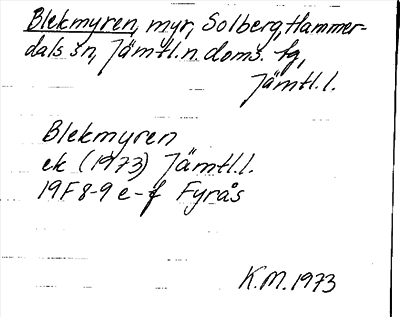 Blekmyren, myr, Solberg, Hammer-
dals sn, Jämtl. n. doms. tg,
Jämtl. l.
Blekmyren
ek (1973) Jämtl. l.
19F 8-9 e-f Fyrås
K.M. 1973